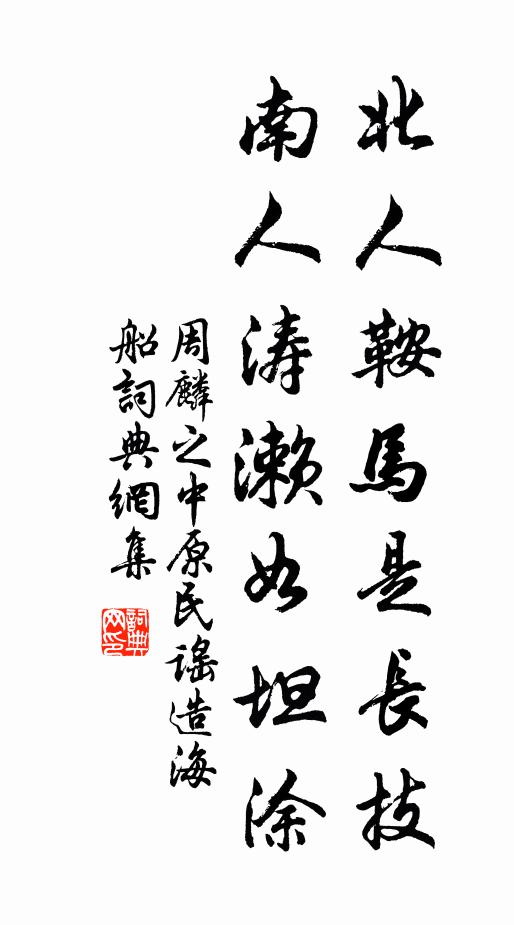 北人鞍馬是長技
南人涛濑如坦涂
周麟之中原民謡造海
船詞典網集
詞典網印